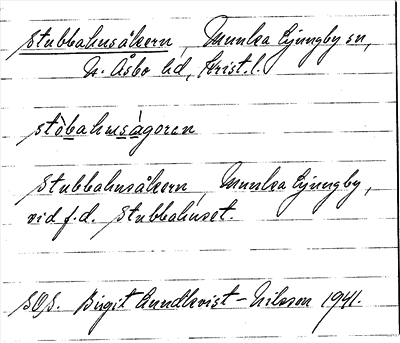 Stubbahusåkern, Munka Ljungby sn,
N. Åsbo hd, Krist. l.
stòbahusàgoren
Stubbahusåkern, Munka Ljungby,
vid f.d. Stubbahuset.
Birgit Lundkvist-Nilsson 1941.